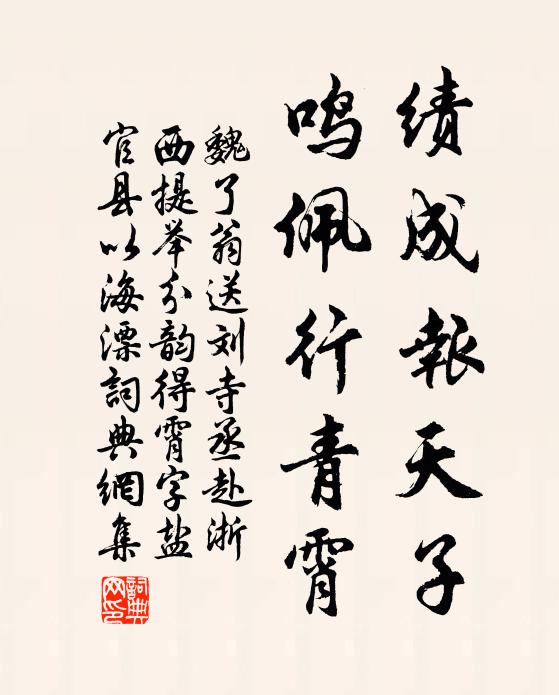 绩成報天子
鸣佩行青霄
魏了翁送刘寺丞赴浙
西提举分韵得霄字盐
官县以海漂詞典網集
詞典
网印